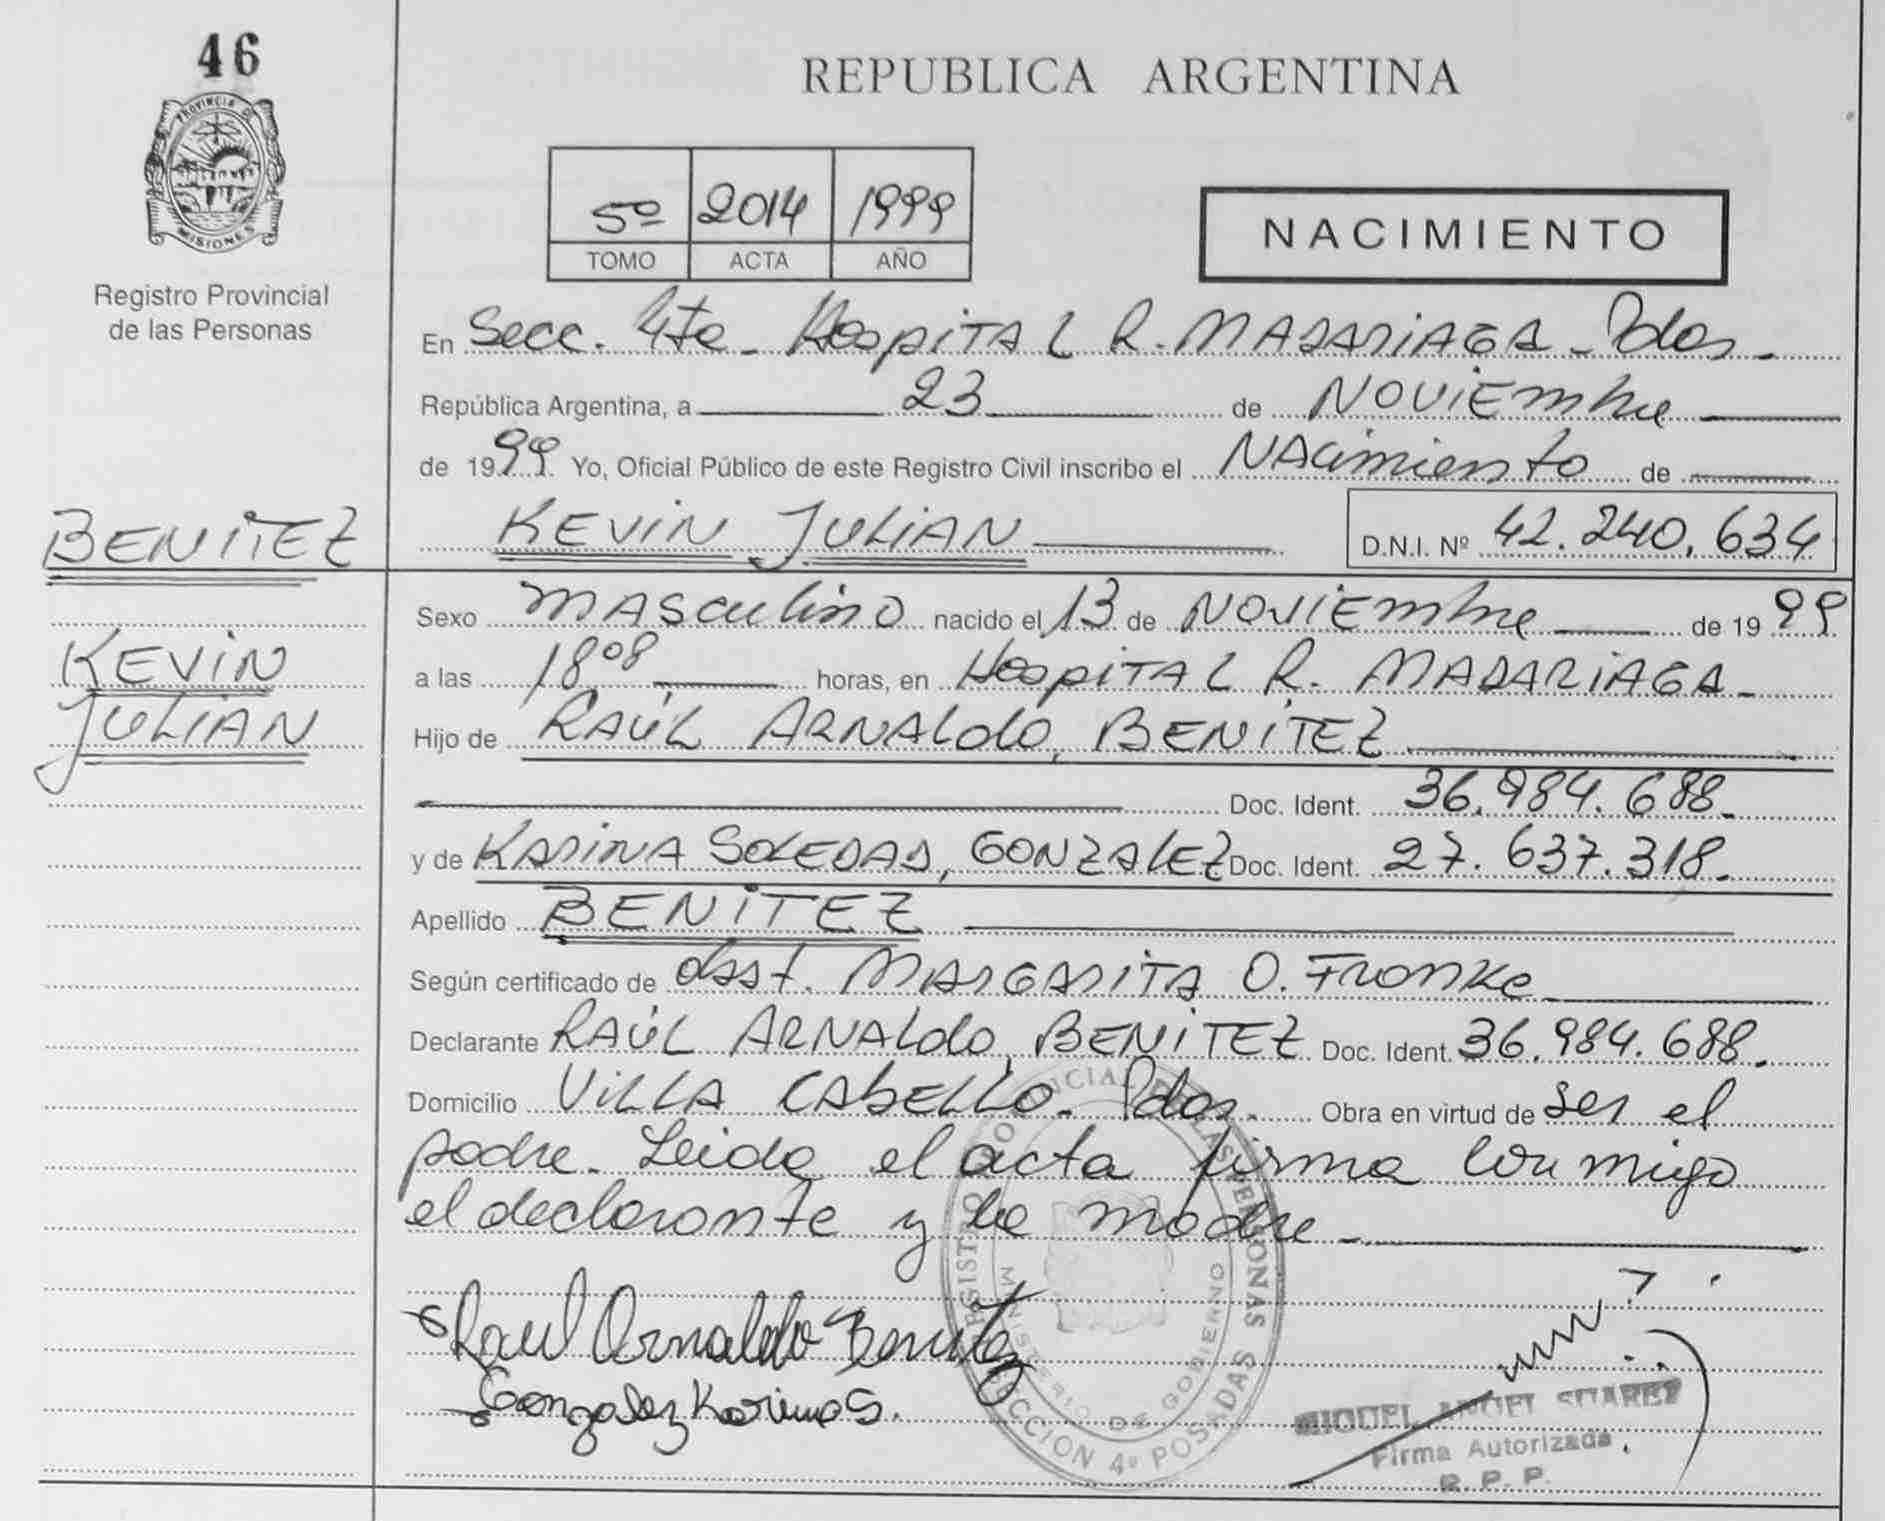 46
PROVINCIA DE
MISIONES
Registro Provincial
de las Personas
REPUBLICA ARGENTINA
5º 2014 1999
TOMO ACTA AÑO
NACIMIENTO
En Secc. 4ta - Hospital R. MADARIAGA - Pdas.
República Argentina, a 23 de NOVIEmbre
de 1999. Yo, Oficial Público de este Registro Civil inscribo el NAcimiento de
BENITEZ KEVIN JULIAN D.N.I. Nº 42.240.634
Sexo MASculino nacido el 13 de NOVIEmbre de 1999
KEVIN
JULIAN
a las 18⁰⁸ horas, en HospITAL R. MADARIAGA -
Hijo de RAÚL ARNALdo, BENITEZ
Doc. Ident. 36.984.688.
y de KARINA SOLEDAD, GONZALEZ Doc. Ident. 27.637.318.
Apellido BENITEZ
Según certificado de obst. MARGARITA O. Fronke
Declarante RAÚL ARNALdo, BENITEZ Doc. Ident. 36.984.688.
Domicilio VILLA CABELLO - Pdas. Obra en virtud de ser el
padre - Leida el acta firma conmigo
el declarante y la madre -
Raul Arnaldo Benitez
Gonzalez Karina S.
REGISTRO PROVINCIAL DE LAS PERSONAS
MINISTERIO DE GOBIERNO
SECCION 4ª POSADAS
MIGUEL ANGEL SUAREZ
Firma Autorizada
R. P. P.